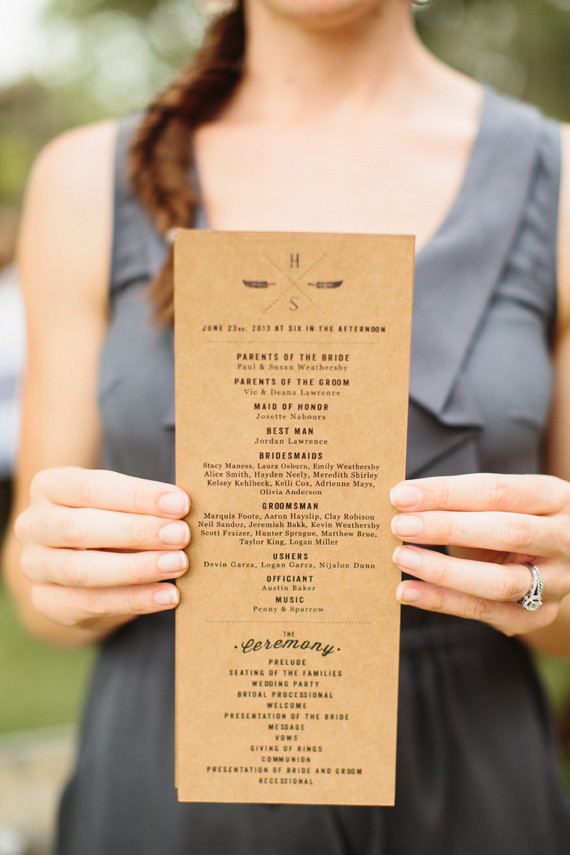 H
S
JUNE 23RD, 2013 AT SIX IN THE AFTERNOON
PARENTS OF THE BRIDE
Paul & Susan Weathersby
PARENTS OF THE GROOM
Vic & Deana Lawrence
MAID OF HONOR
Josette Naboura
BEST MAN
Jordan Lawrence
BRIDESMAIDS
Stacy Maness, Laura Osburn, Emily Weathersby
Alice Smith, Hayden Neely, Meredith Shirley
Kelsey Kehlbeck, Kelli Cox, Adrienne Mays,
Olivia Anderson
GROOMSMAN
Marquis Foote, Aaron Hayslip, Clay Robison
Neil Sandoz, Jeremiah Bakk, Kevin Weathersby
Scott Fraizer, Hunter Sprague, Matthew Brue,
Taylor King, Logan Miller
USHERS
Devin Garza, Logan Garza, Nijalon Dunn
OFFICIANT
Austin Baker
MUSIC
Penny & Sparrow
THE
Ceremony
PRELUDE
SEATING OF THE FAMILIES
WEDDING PARTY
BRIDAL PROCESSIONAL
WELCOME
PRESENTATION OF THE BRIDE
MESSAGE
VOWS
GIVING OF RINGS
COMMUNION
PRESENTATION OF BRIDE AND GROOM
RECESSIONAL